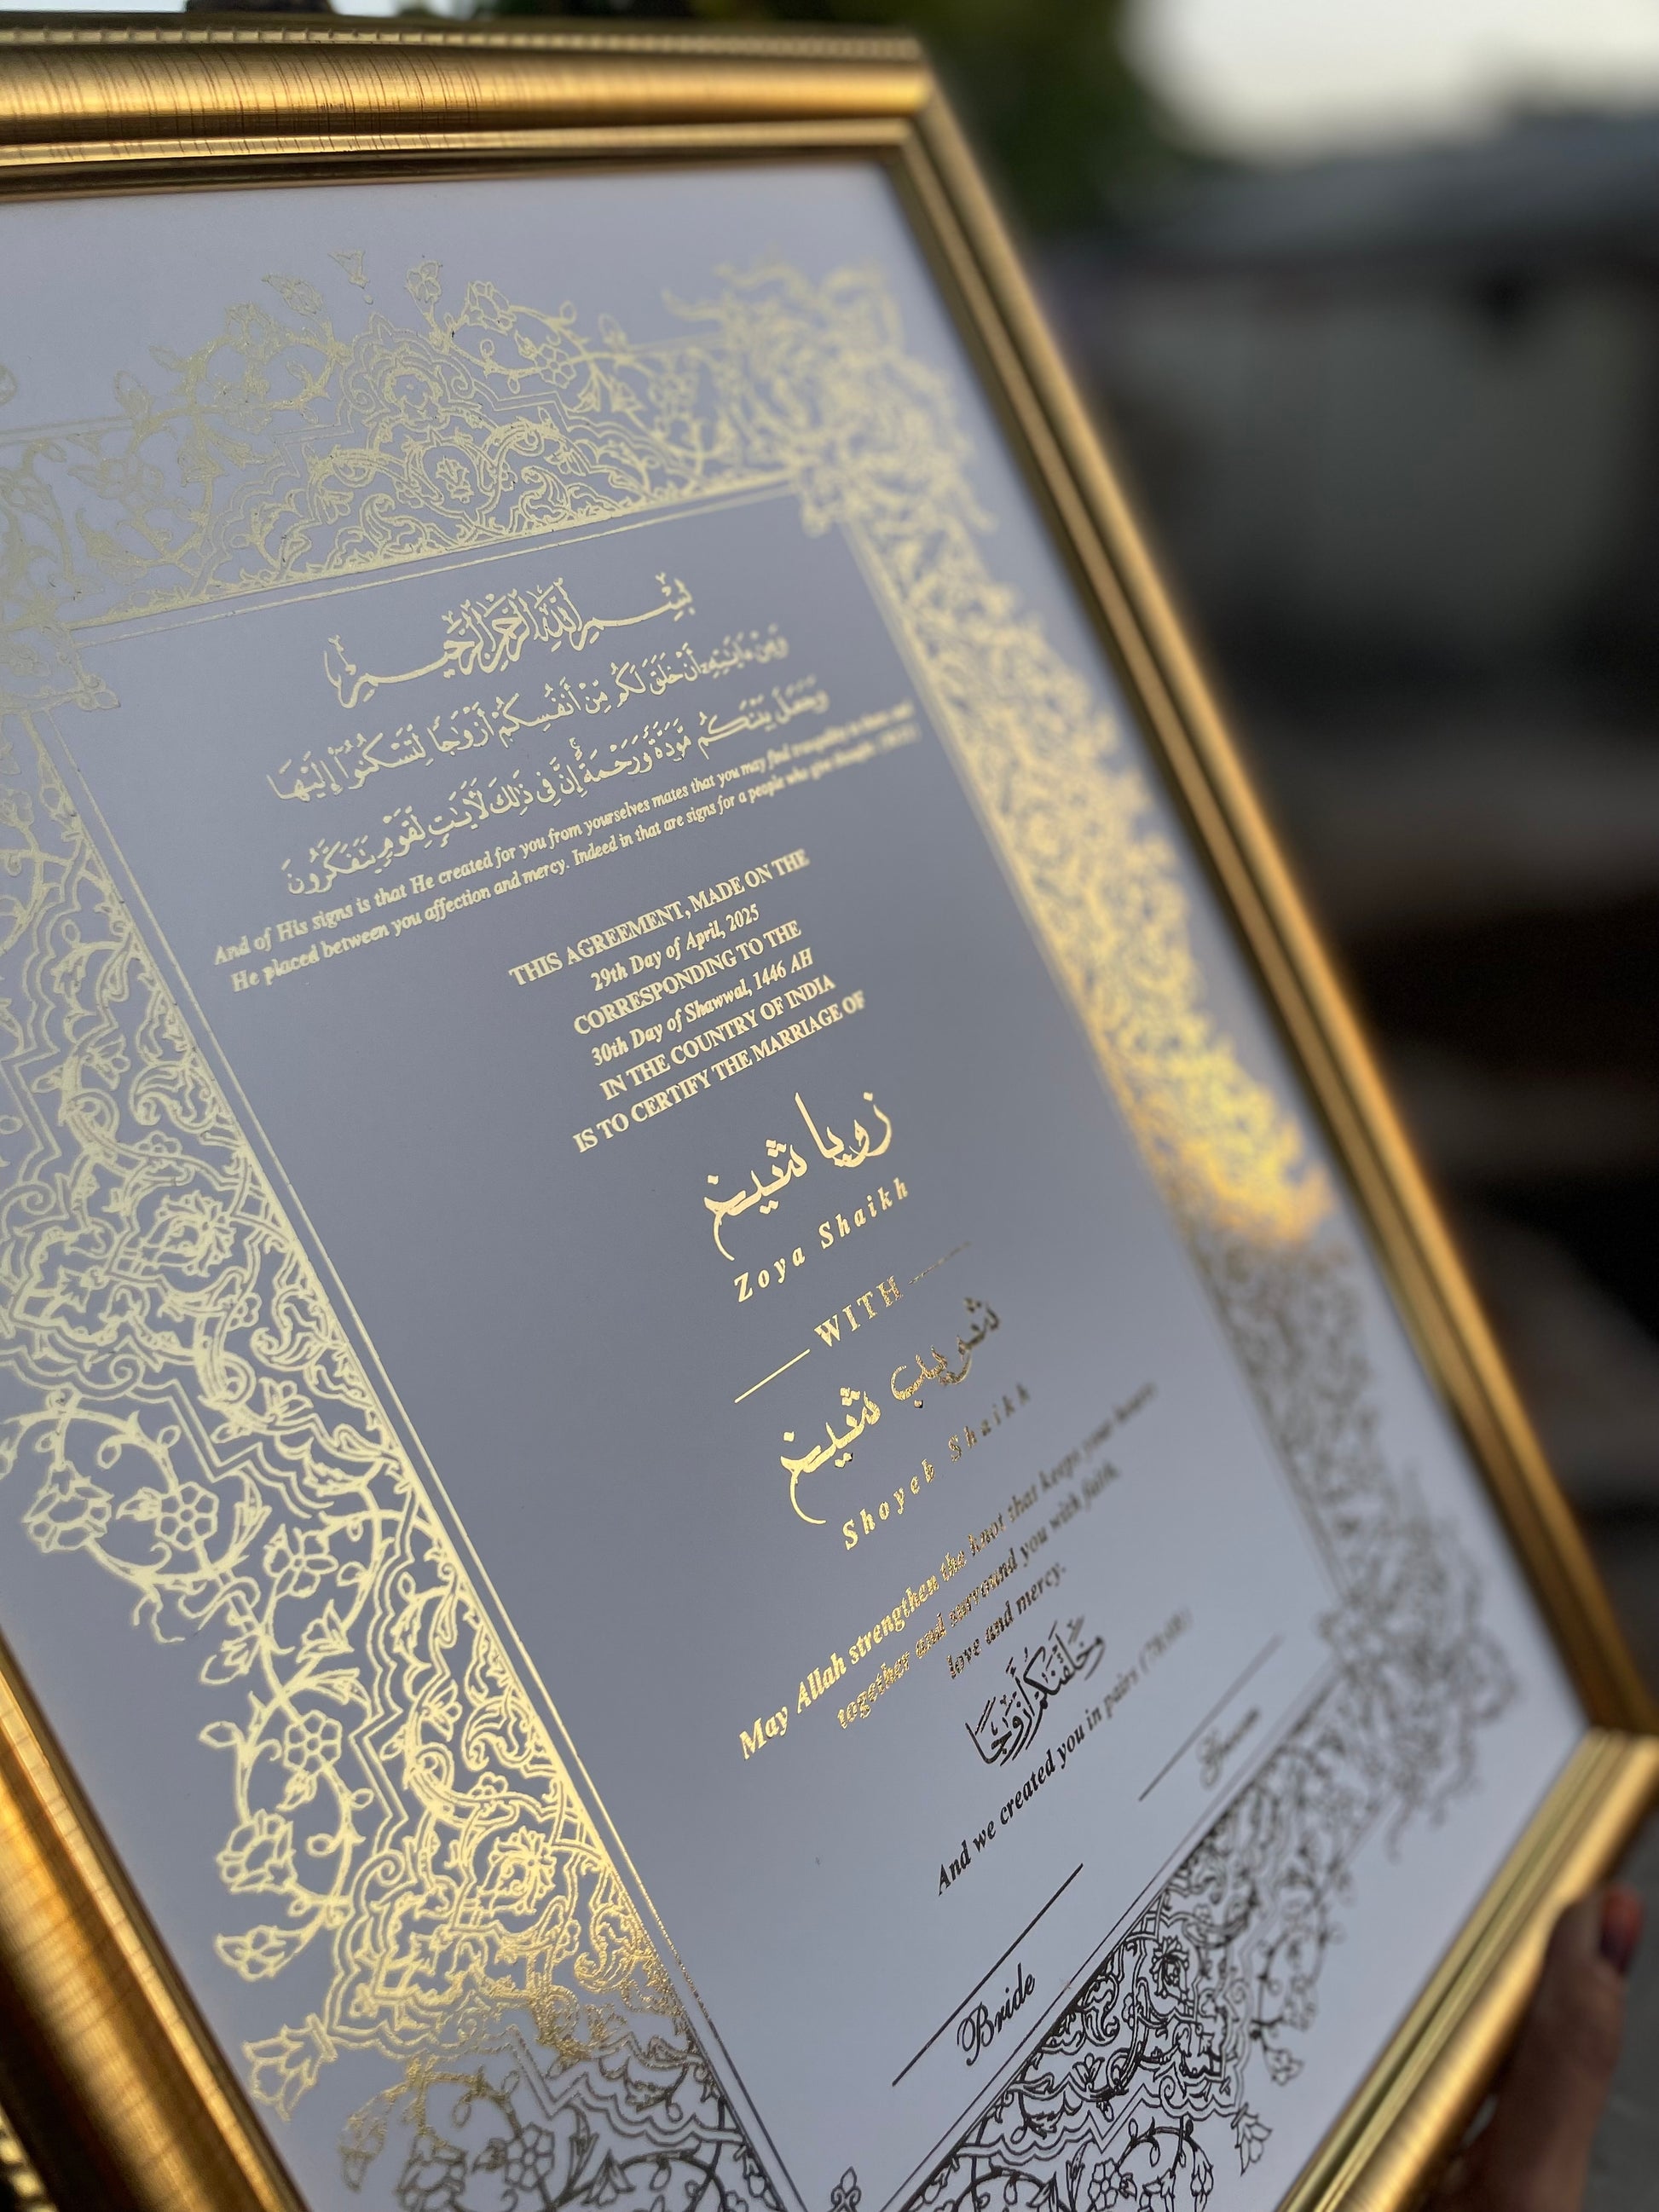 بسم الله الرحمن الرحيم
وَمِنْ ءَايَـٰتِهِۦٓ أَنْ خَلَقَ لَكُم مِّنْ أَنفُسِكُمْ أَزْوَٰجًا لِّتَسْكُنُوٓا۟ إِلَيْهَا
وَجَعَلَ بَيْنَكُم مَّوَدَّةً وَرَحْمَةً ۚ إِنَّ فِى ذَٰلِكَ لَـَٔايَـٰتٍ لِّقَوْمٍ يَتَفَكَّرُونَ
And of His signs is that He created for you from yourselves mates that you may find tranquility in them and
He placed between you affection and mercy. Indeed in that are signs for a people who give thought
THIS AGREEMENT, MADE ON THE
29th Day of April, 2025
CORRESPONDING TO THE
30th Day of Shawwal, 1446 AH
IN THE COUNTRY OF INDIA
IS TO CERTIFY THE MARRIAGE OF
زويا شيخ
Zoya Shaikh
WITH
شويب شيخ
Shoyeb Shaikh
May Allah strengthen the knot that keeps your hearts
together and surround you with faith,
love and mercy.
وَخَلَقْنَـٰكُمْ أَزْوَٰجًا
And we created you in pairs
Groom
Bride